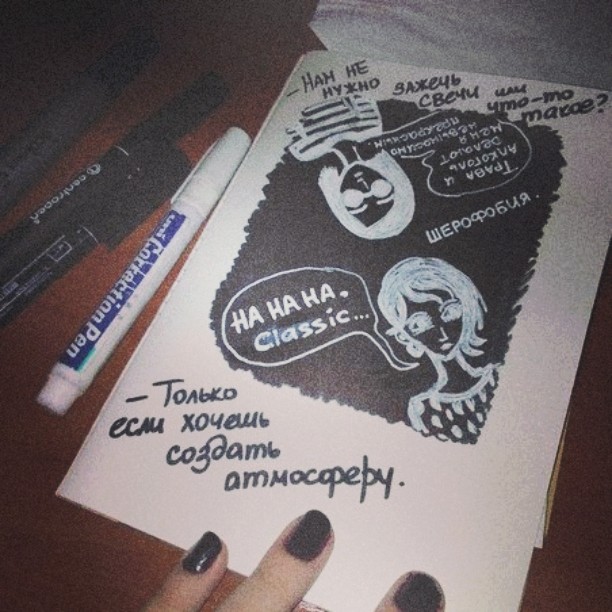 – Нам не
нужно зажечь
свечи или
что-то
такое?
ТРАВА И
АЛКОГОЛЬ
ДЕЛАЮТ
МЕНЯ
НЕВЫНОСИМО
ПРЕКРАСНЫМ.
ШЕРОФОБИЯ.
НА НА НА.
Classic...
– Только
если хочешь
создать
атмосферу.
centropen
uni Correction Pen